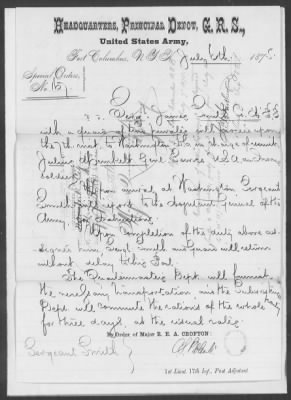 HEADQUARTERS, PRINCIPAL DEPOT, G. R. S.,
United States Army,
Fort Columbus, N. Y. H. July 6th, 1875.
Special Orders,
No. 157
I.. Serg't James Smith
with a guard of two privates will proceed upon
the 7th inst. to Washington D.C. in charge of
Julius General Service U.S.A. an
soldier.
Upon arrival at Washington Sergeant
Smith will report to the Adjutant General of the
Army for instructions.
Upon completion of the duty above as-
signed him, Serg't Smith and guard will return
without delay to this Post.
The Quartermaster's Dept. will furnish
the necessary transportation and the Subsistence
Dept. will commute the rations of the whole
for three days at the usual rates.
By Order of Major R. E. A. CROFTON:
1st Lieut. 17th Inf., Post Adjutant.
Sergeant Smith